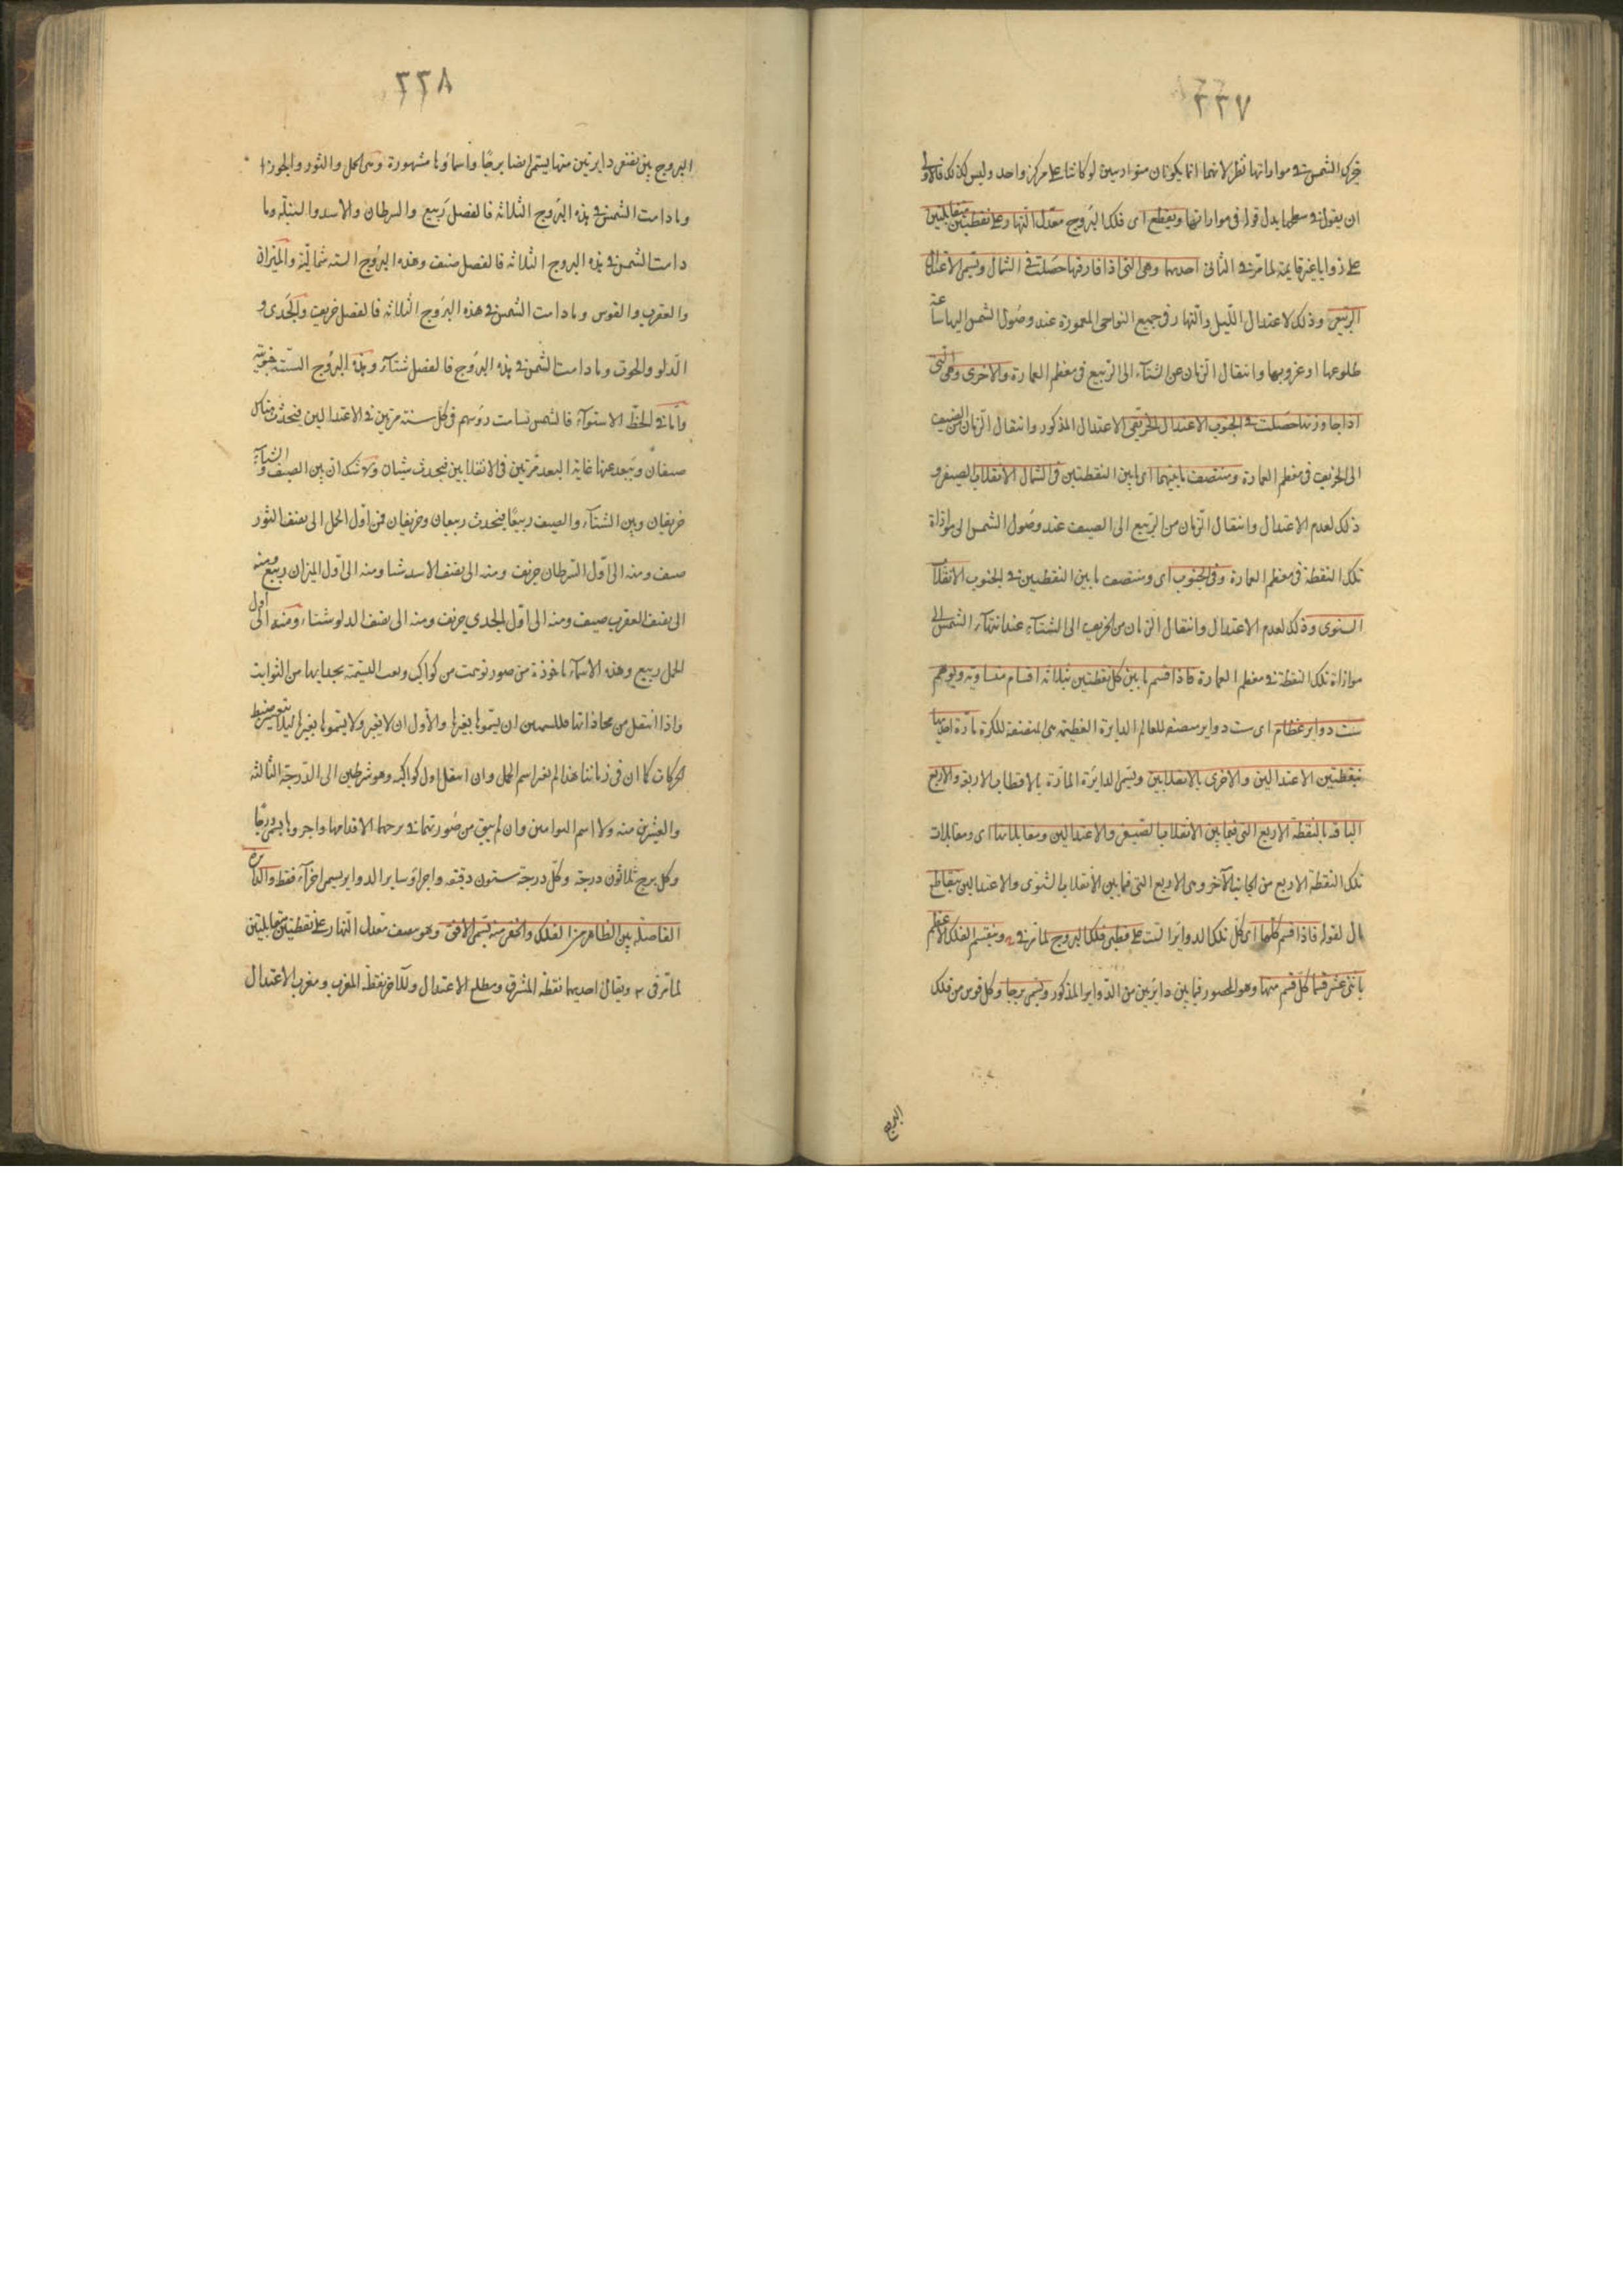 ٢٢٧
الشمس في موازاتها نظر لانهما انما يكونان متوازيين لو كانتا على مركز واحد وليس كذلك فالاولى
ان يقول في سطحها بدل قوله في موازاتها ويقطع اى فلك البروج معدل النهار على نقطتين متقابلتين
على زوايا غير قايمة لما مر في الثانى احديهما وهى التى اذا فارقها حصلت في الشمال وتسمى الاعتدال
الربيعى وذلك لاعتدال الليل والنهار فى جميع النواحى المعمورة عند وصول الشمس اليها ساعة
طلوعها او غروبها وانتقال الزمان من الشتاء الى الربيع فى معظم العمارة والاخرى وهى التى
اذا جاوزتها حصلت في الجنوب الاعتدال الخريفى الاعتدال المذكور وانتقال الزمان من الصيف
الى الخريف فى معظم العمارة ومنتصف ما بينهما اى ما بين النقطتين فى الشمال الانقلاب الصيفى و
ذلك لعدم الاعتدال وانتقال الزمان من الربيع الى الصيف عند وصول الشمس الى موازاة
تلك النقطة فى معظم العمارة وفى الجنوب اى ومنتصف ما بين النقطتين في الجنوب الانقلاب
الستوى وذلك لعدم الاعتدال وانتقال الزمان من الخريف الى الشتاء عند انتهاء الشمس الى
موازاة تلك النقطة في معظم العمارة فاذا قسم ما بين كل نقطتين بثلاثة اقسام متساوية وتوهم
ست دواير عظام اى ست دواير منصفة للعالم الدايرة العظيمة هى المنصفة للكرة مارة احديها
بنقطتين الاعتدالين والاخرى بالانقلابين وتسمى الدايرة المارة بالاقطاب الاربعة والاربع
الباقية بالنقطة الاربع التى فيما بين الانقلاب الصيفى والاعتدالين ومقابلاتها اى ومقابلات
تلك النقطة الاربع من الجانب الآخر وهى الاربع التى فيما بين الانقلاب الشتوى والاعتدالين بتقاطع
ال لقوله فاذا قسم كلها اى كل تلك الدواير الست على قطبى فلك البروج لما مر في وينقسم الفلك الاعظم
باثنى عشر قسما كل قسم منها وهو المحصور فيما بين دايرتين من الدواير المذكور وتسمى برجا وكل قوس من فلك
البروج
٢٢٨
البروج بين نصفى دايرتين منها يسمى ايضا برجًا واسماؤها مشهورة وهى الحمل والثور والجوزا
وما دامت الشمس في هذه البروج الثلاثة فالفصل ربيع والسرطان والاسد والسنبلة وما
دامت الشمس في هذه البروج الثلاثه فالفصل صيف وهذه البروج السته شمالية والميزان
والعقرب والقوس وما دامت الشمس في هذه البروج الثلاثه فالفصل خريف والجدى و
الدلو والحوت وما دامت الشمس في هذه البروج فالفصل شتاء وهذه البروج الستة جنوبية
واما في الخط الاستواء فالشمس تسامت رؤسهم فى كل سنة مرتين في الاعتدالين فيحدث هناك
صيفان وتبعد عنها غاية البعد مرتين فى الانقلابين فيحدث شيتان ولا شك ان بين الصيف والشتاء
خريفان وبين الشتاء والصيف ربيعًا فيحدث ربيعان وخريفان فمن اول الحمل الى نصف الثور
صيف ومنه الى اول السرطان خريف ومنه الى نصف الاسد شتا ومنه الى اول الميزان ربيع ومنه
الى نصف العقرب صيف ومنه الى اول الجدي خريف ومنه الى نصف الدلو شتاء ومنه الى اول
الحمل ربيع وهذه الاسماء ماخوذة من صور توهمت من كواكب وقعت القسمة بحذايها من الثوابت
واذا انتقل من محاذاتها فللمسمين ان يسموها بغيرها والاول ان لا يغير ولا يسموها بغيرها ليلا يتغير ضبط
الحركات كما ان فى زماننا هذا لم يغير اسم الحمل وان انتقل اول كواكبه وهو شرطين الى الدرجة الثالثة
والعشرين منه ولا اسم التوامين وان لم يبق من صورتهما في برجهما الا قدامهما واجزوها يسمى درجًا
وكل برج ثلاثون درجة وكل درجة ستون دقيقه واجزاؤ ساير الدواير يسمى اجزاء فقط والدايرة
الفاصلة بين الظاهر من الفلك والخفى منه تسمى الافق وهو ينصف معدل النهار على نقطتين متقابلتين
لما مر فى ويقال احديهما نقطة المشرق ومطلع الاعتدال وللاخر نقطة المغرب ومغرب الاعتدال